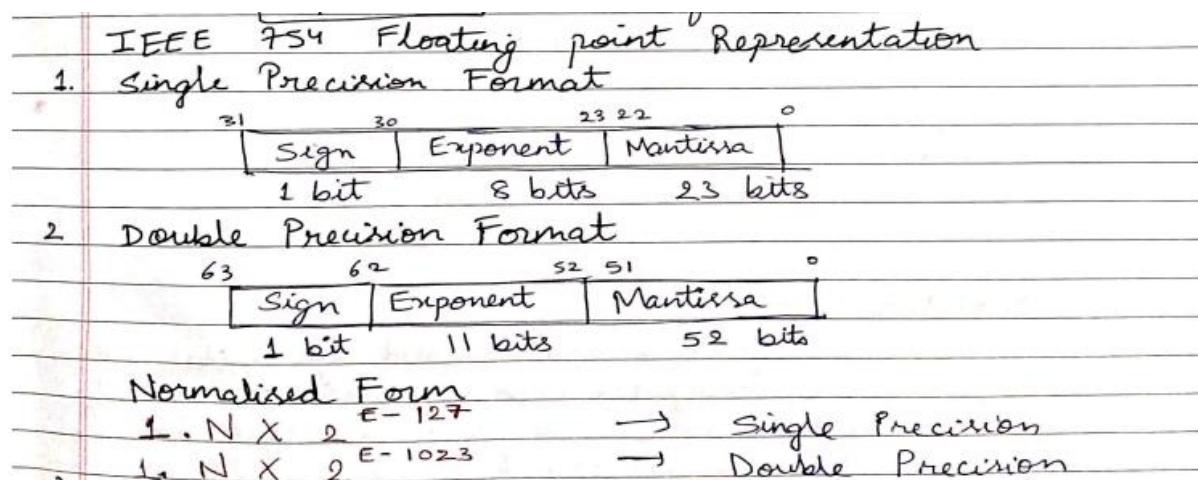 IEEE 754 Floating point Representation
1. Single Precision Format
31 30 23 22 0
Sign Exponent Mantissa
1 bit 8 bits 23 bits
2 Double Precision Format
63 62 52 51 0
Sign Exponent Mantissa
1 bit 11 bits 52 bits
Normalised Form
1.N X 2^E-127 → Single Precision
1.N X 2^E-1023 → Double Precision